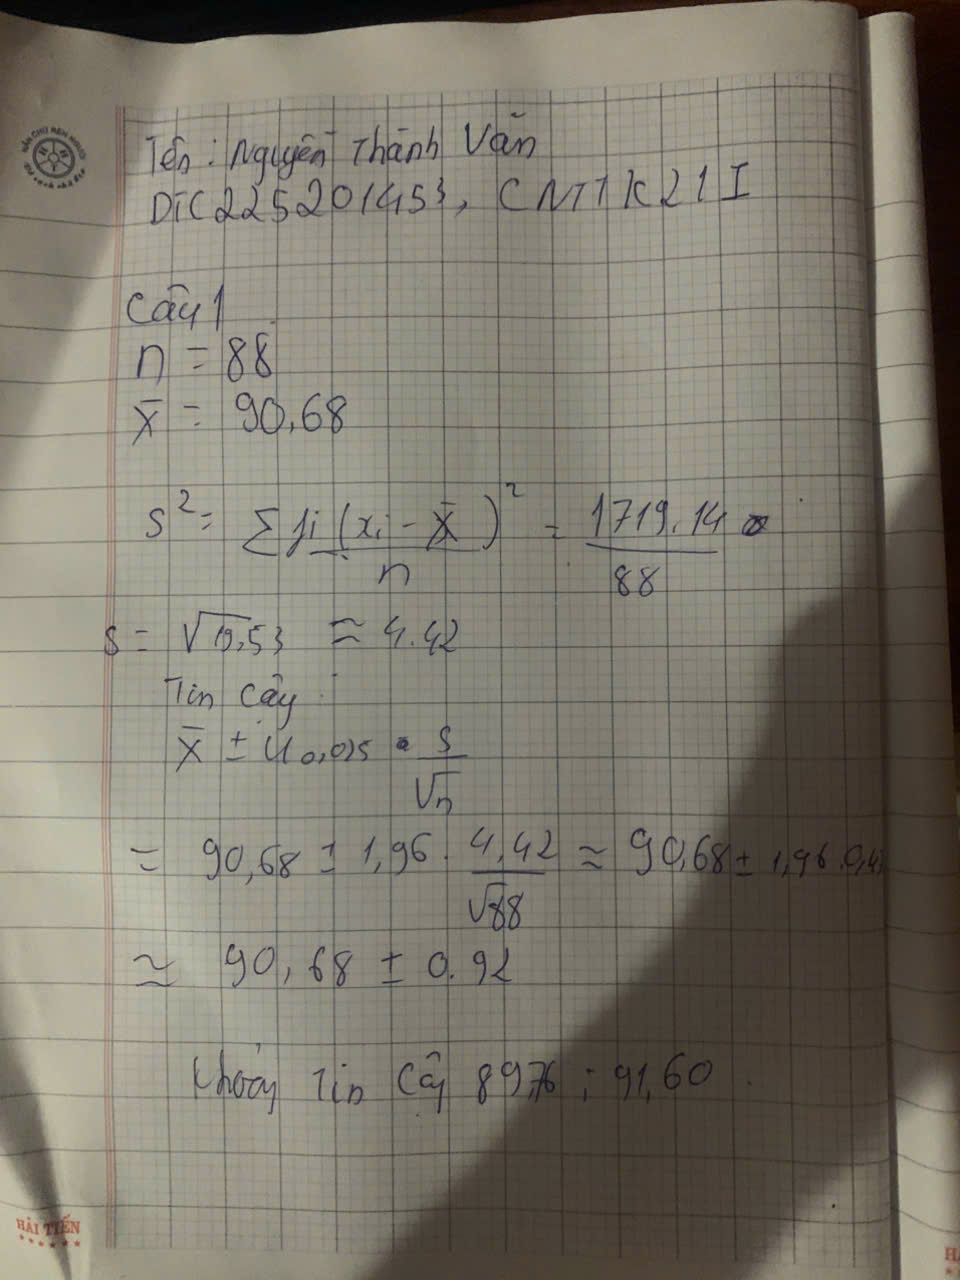 Tên: Nguyễn Thành Văn
DTC225201453, CNTTK21I
Câu 1
n = 88
x̄ = 90,68
s² = Σfi(xi - x̄)² / n = 1719.14 / 88
s = √19,53 ≈ 4.42
Tin cậy:
x̄ ± u0,025 • s/√n
= 90,68 ± 1,96 . 4,42/√88 ≈ 90,68 ± 1,96 . 0,4
≈ 90,68 ± 0.92
Khoảng tin cậy 89,76 ; 91,60
HẢI TIẾN